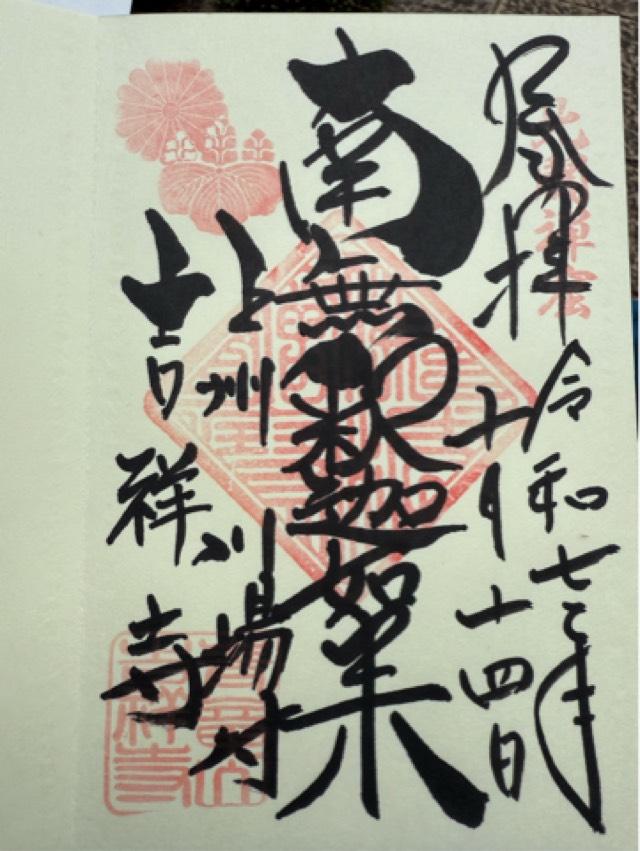 拝
令和七年
十月十四日
南無釈迦如来
上州
川場村
吉祥寺
青龍山
吉祥寺